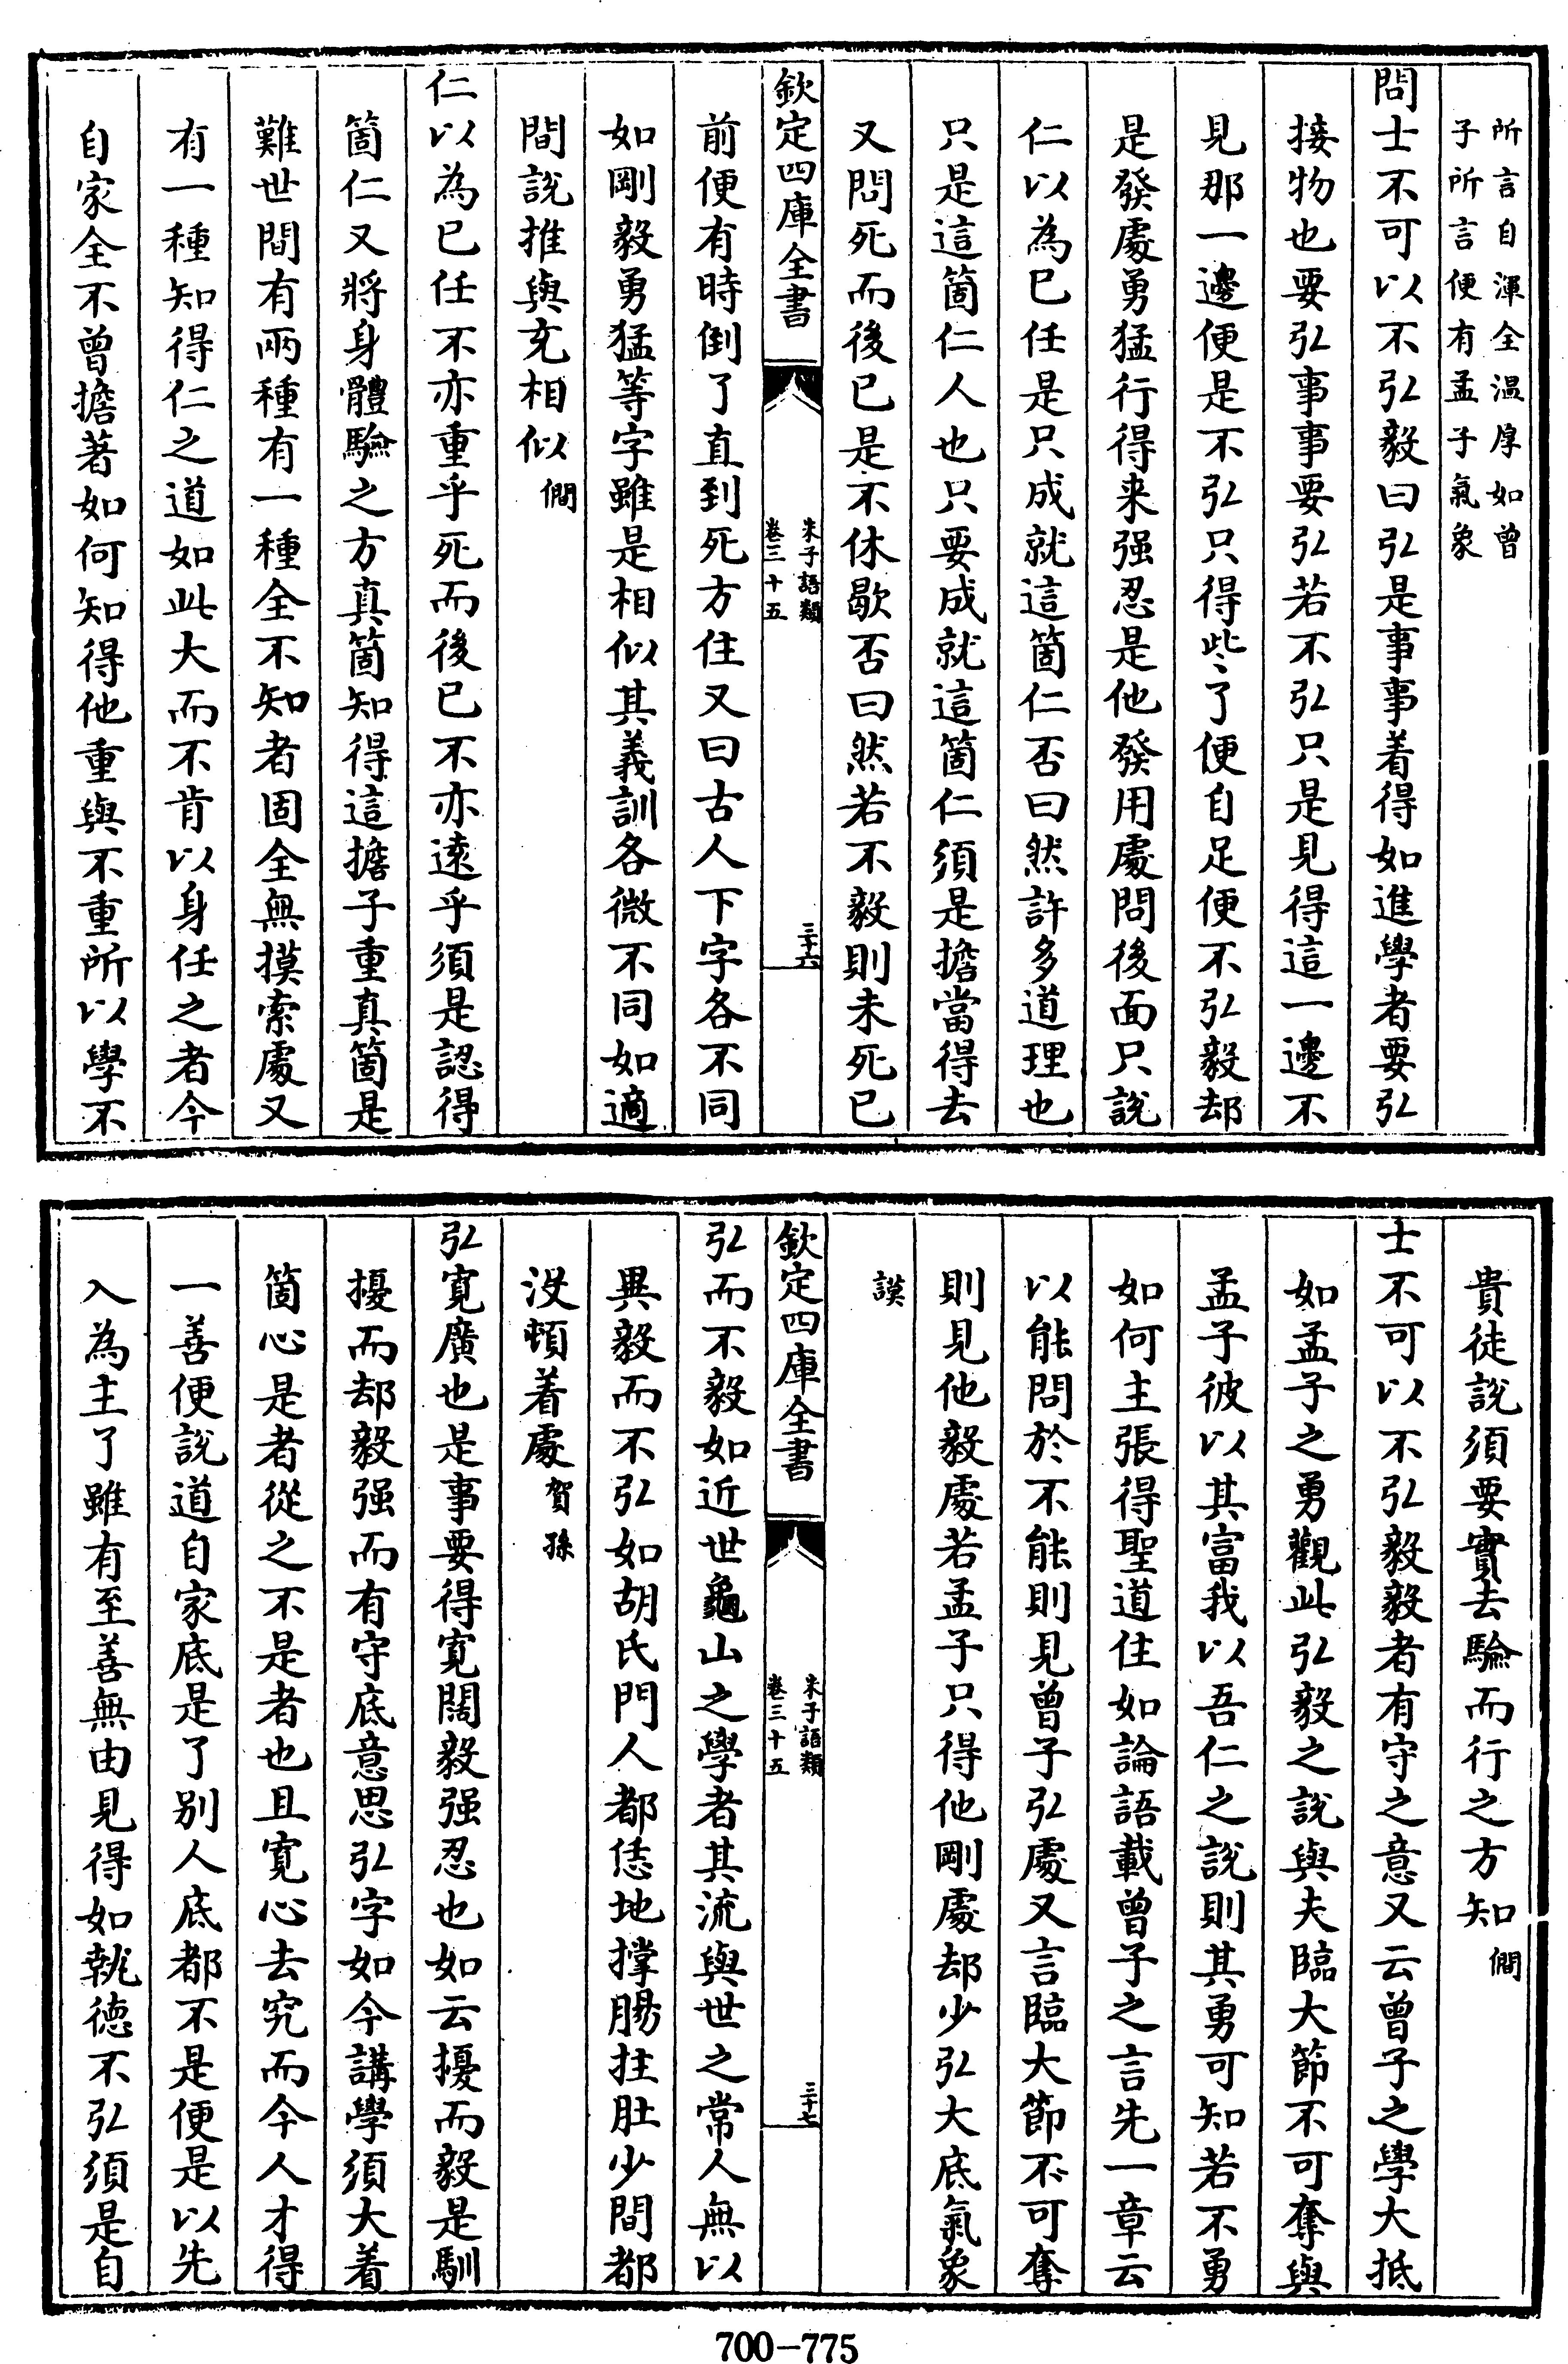 所言自渾全温厚如曾
子所言便有孟子氣象
問士不可以不弘毅曰弘是事事着得如進學者要弘
接物也要弘事事要弘若不弘只是見得這一邊不
見那一邊便是不弘只得些了便自足便不弘毅却
是發處勇猛行得来强忍是他發用處問後面只說
仁以為已任是只成就這箇仁否曰然許多道理也
只是這箇仁人也只要成就這箇仁須是擔當得去
又問死而後已是不休歇否曰然若不毅則未死已
欽定四庫全書
朱子語類
卷三十五
三十六
前便有時倒了直到死方住又曰古人下字各不同
如剛毅勇猛等字雖是相似其義訓各微不同如適
間說推與充相似 僩
仁以為已任不亦重乎死而後已不亦遠乎須是認得
箇仁又將身體驗之方真箇知得這擔子重真箇是
難世間有兩種有一種全不知者固全無摸索處又
有一種知得仁之道如此大而不肯以身任之者今
自家全不曾擔著如何知得他重與不重所以學不
貴徒說須要實去驗而行之方知 僩
士不可以不弘毅毅者有守之意又云曾子之學大抵
如孟子之勇觀此弘毅之說與夫臨大節不可奪與
孟子彼以其富我以吾仁之說則其勇可知若不勇
如何主張得聖道住如論語載曾子之言先一章云
以能問於不能則見曾子弘處又言臨大節不可奪
則見他毅處若孟子只得他剛處却少弘大底氣象
謨
欽定四庫全書
朱子語類
卷三十五
三十七
弘而不毅如近世龜山之學者其流與世之常人無以
異毅而不弘如胡氏門人都恁地撑腸拄肚少間都
没頓着處 賀孫
弘寛廣也是事要得寛闊毅强忍也如云擾而毅是馴
擾而却毅强而有守底意思弘字如今講學須大着
箇心是者從之不是者也且寛心去究而今人才得
一善便說道自家底是了别人底都不是便是以先
入為主了雖有至善無由見得如執德不弘須是自
700-775